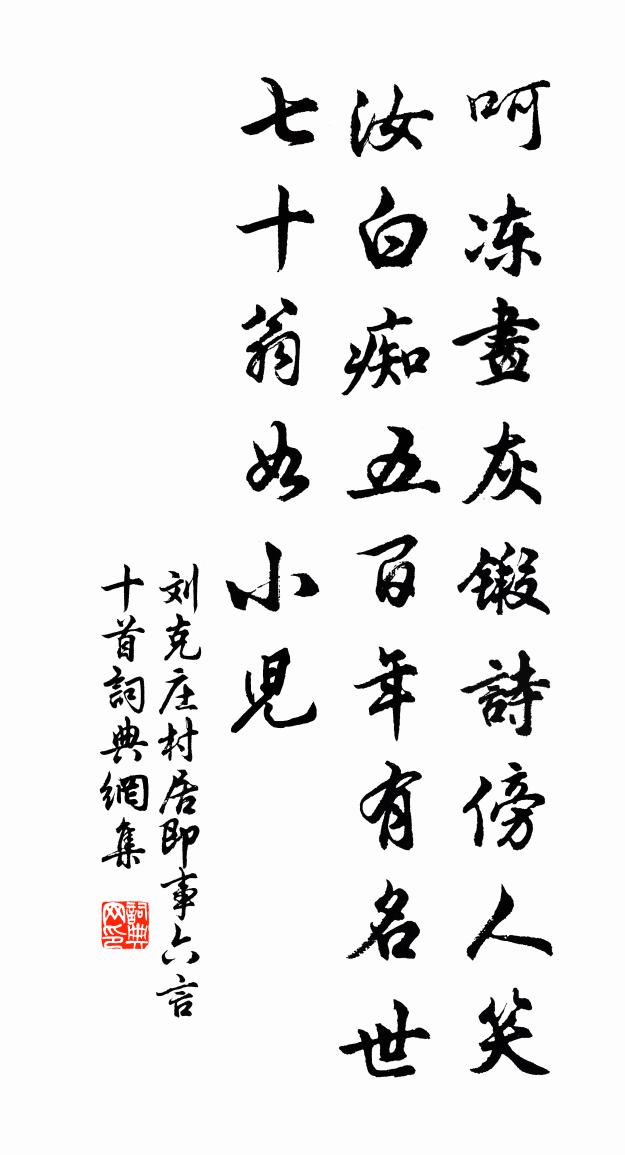 呵冻畫灰鍛詩傍人笑
汝白痴五百年有名世
七十翁如小児
刘克庄村居即事六言
十首詞典網集
詞典网印